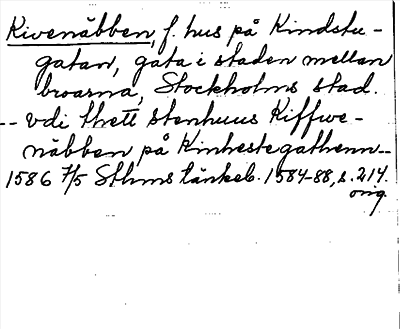 Kivenäbben, f. hus på Kindstu-
gatan, gata i staden mellan
broarna, Stockholms stad.
-- vdi thett stenhuus Kiffwe-
näbben på Kinhestegathenn--
1586 7/5 Sthms tänkeb. 1584-88, s. 214.
orig.